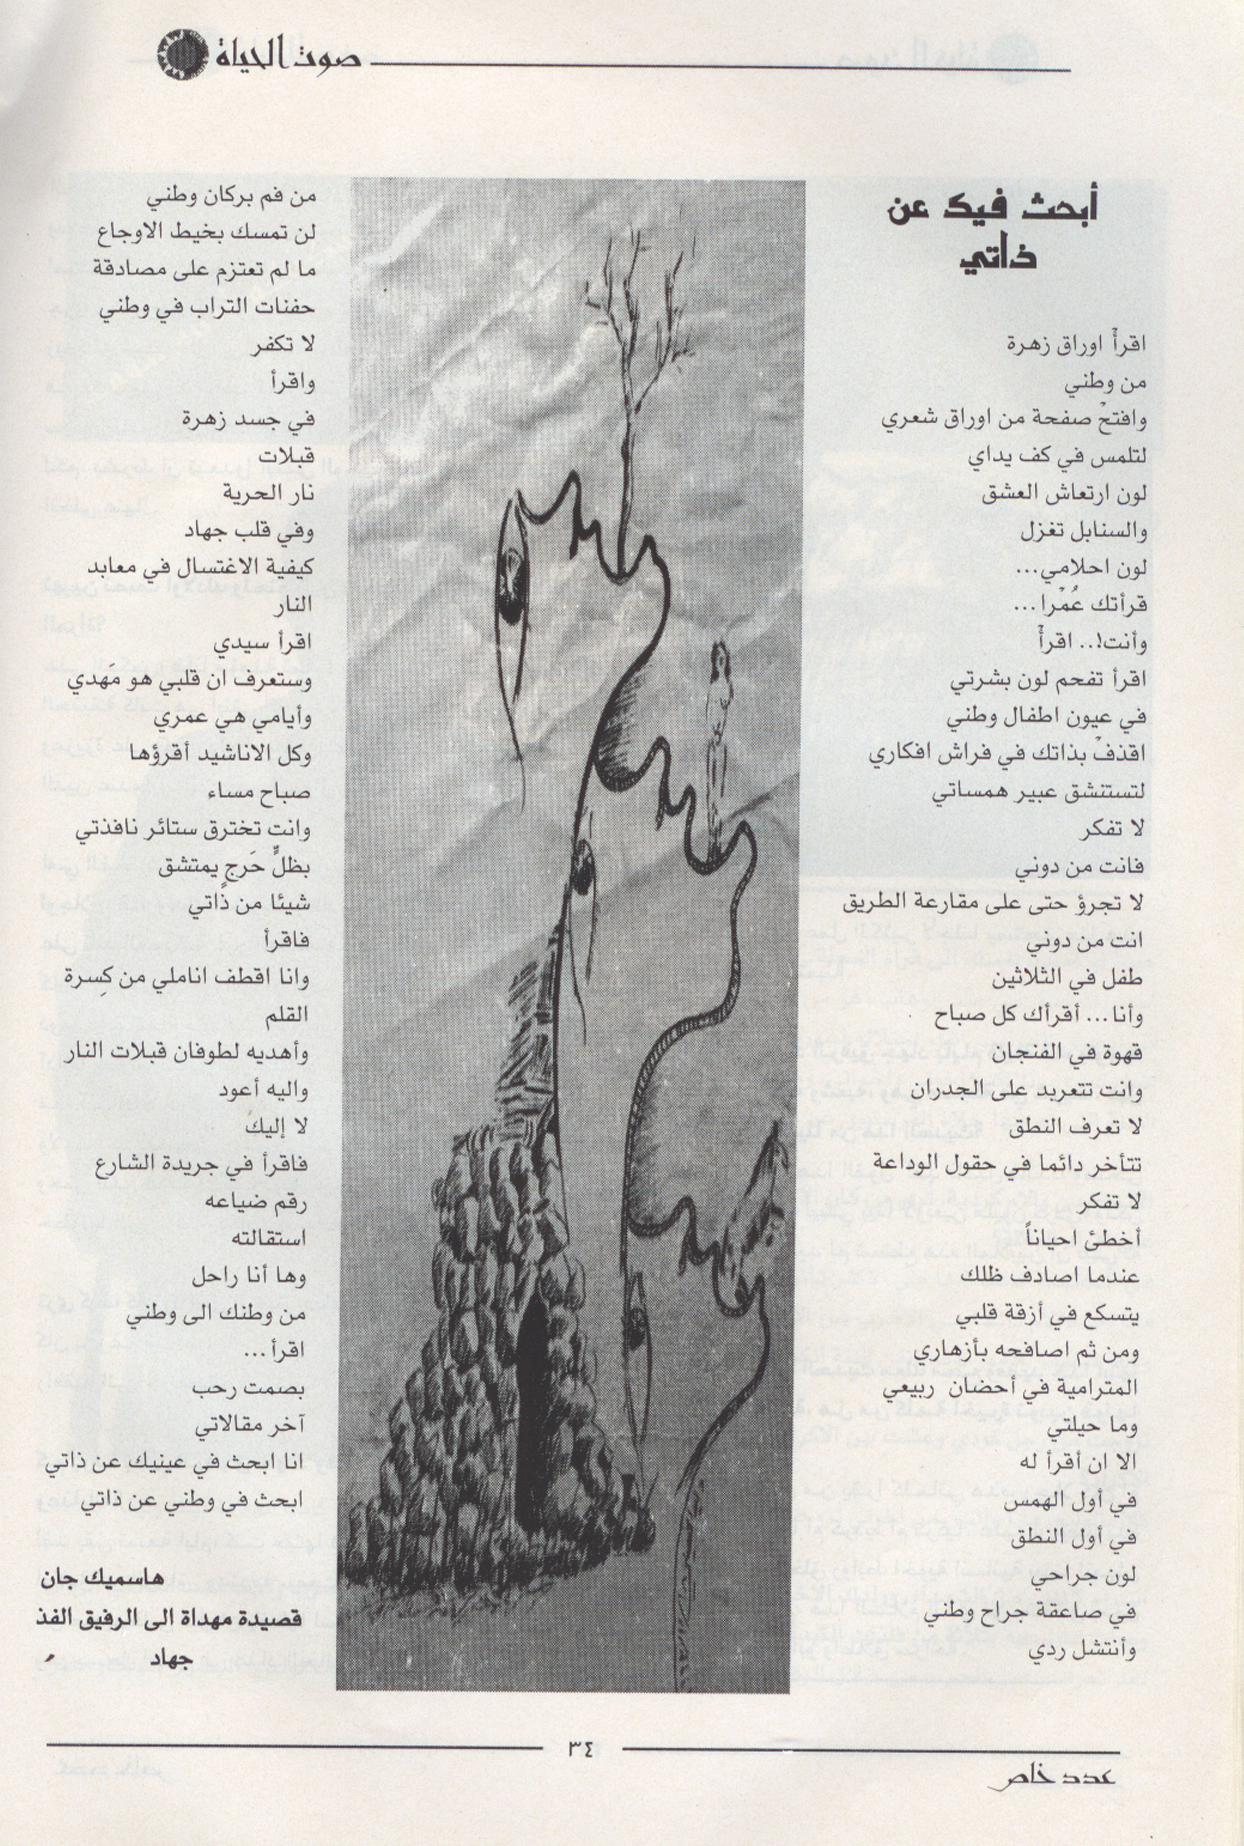 صوت الحياة
أبحث فيك عن
ذاتي
اقرأْ اوراق زهرة
من وطني
وافتحْ صفحة من اوراق شعري
لتلمس في كف يداي
لون ارتعاش العشق
والسنابل تغزل
لون احلامي...
قرأتك عُمْرا...
وأنت!.. اقرأْ
اقرأ تفحم لون بشرتي
في عيون اطفال وطني
اقذفْ بذاتك في فراش افكاري
لتستنشق عبير همساتي
لا تفكر
فانت من دوني
لا تجرؤ حتى على مقارعة الطريق
انت من دوني
طفل في الثلاثين
وأنا... أقرأك كل صباح
قهوة في الفنجان
وانت تتعربد على الجدران
لا تعرف النطق
تتأخر دائما في حقول الوداعة
لا تفكر
أخطئ احياناً
عندما اصادف ظلك
يتسكع في أزقة قلبي
ومن ثم اصافحه بأزهاري
المترامية في أحضان ربيعي
وما حيلتي
الا ان أقرأ له
في أول الهمس
في أول النطق
لون جراحي
في صاعقة جراح وطني
وأنتشل ردي
من فم بركان وطني
لن تمسك بخيط الاوجاع
ما لم تعتزم على مصادقة
حفنات التراب في وطني
لا تكفر
واقرأ
في جسد زهرة
قبلات
نار الحرية
وفي قلب جهاد
كيفية الاغتسال في معابد
النار
اقرأ سيدي
وستعرف ان قلبي هو مهدي
وأيامي هي عمري
وكل الاناشيد أقرؤها
صباح مساء
وانت تخترق ستائر نافذتي
بظلٍّ حَرجٍ يمتشق
شيئا من ذاتي
فاقرأ
وانا اقطف اناملي من كِسرة
القلم
وأهديه لطوفان قبلات النار
واليه أعود
لا إليكَ
فاقرأ في جريدة الشارع
رقم ضياعه
استقالته
وها أنا راحل
من وطنك الى وطني
اقرأ...
بصمت رحب
آخر مقالاتي
انا ابحث في عينيك عن ذاتي
ابحث في وطني عن ذاتي
هاسميك جان
قصيدة مهداة الى الرفيق الفذ
جهاد
٣٤
عدد خاص